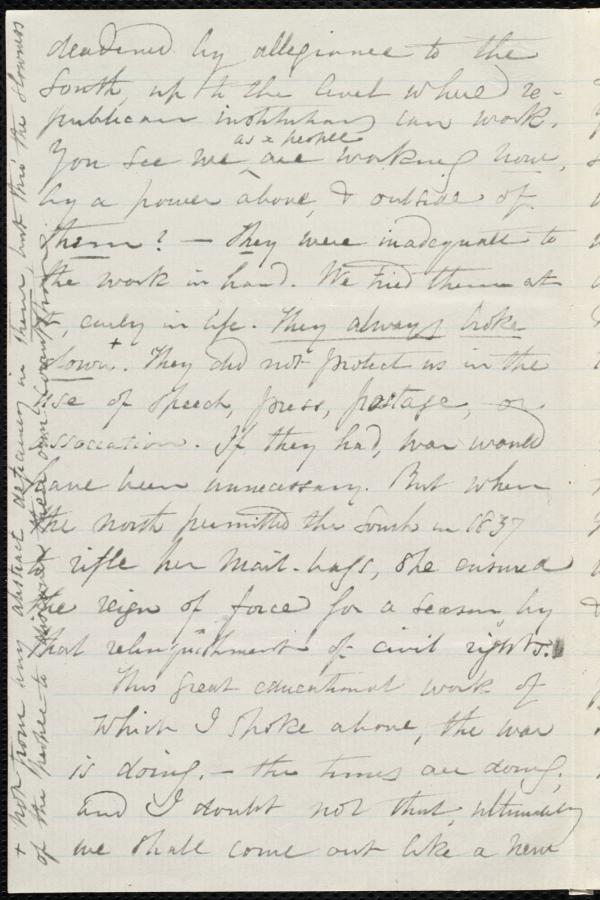 deadened by allegiance to the
South, up to the level where re-
publican institutions can work.
as a people
You see we are working now,
by a power above, & outside of
them? — They were inadequate to
the work in hand. We tried them at
it, early in life. They always broke
down.+ They did not protect us in the
use of speech, press, postage, or
association. If they had, war would
have been unnecessary. But when
the north permitted the South in 1837
to rifle her mail-bags, she ensured
the reign of force for a season, by
that relinquishment of civil rights.
This great educational work of
which I spoke above, the war
is doing, — the times are doing,
and I doubt not that, ultimately
we shall come out like a new
+ Not from any abstract deficiency in them, but thro' the slowness
of the people to discover their own